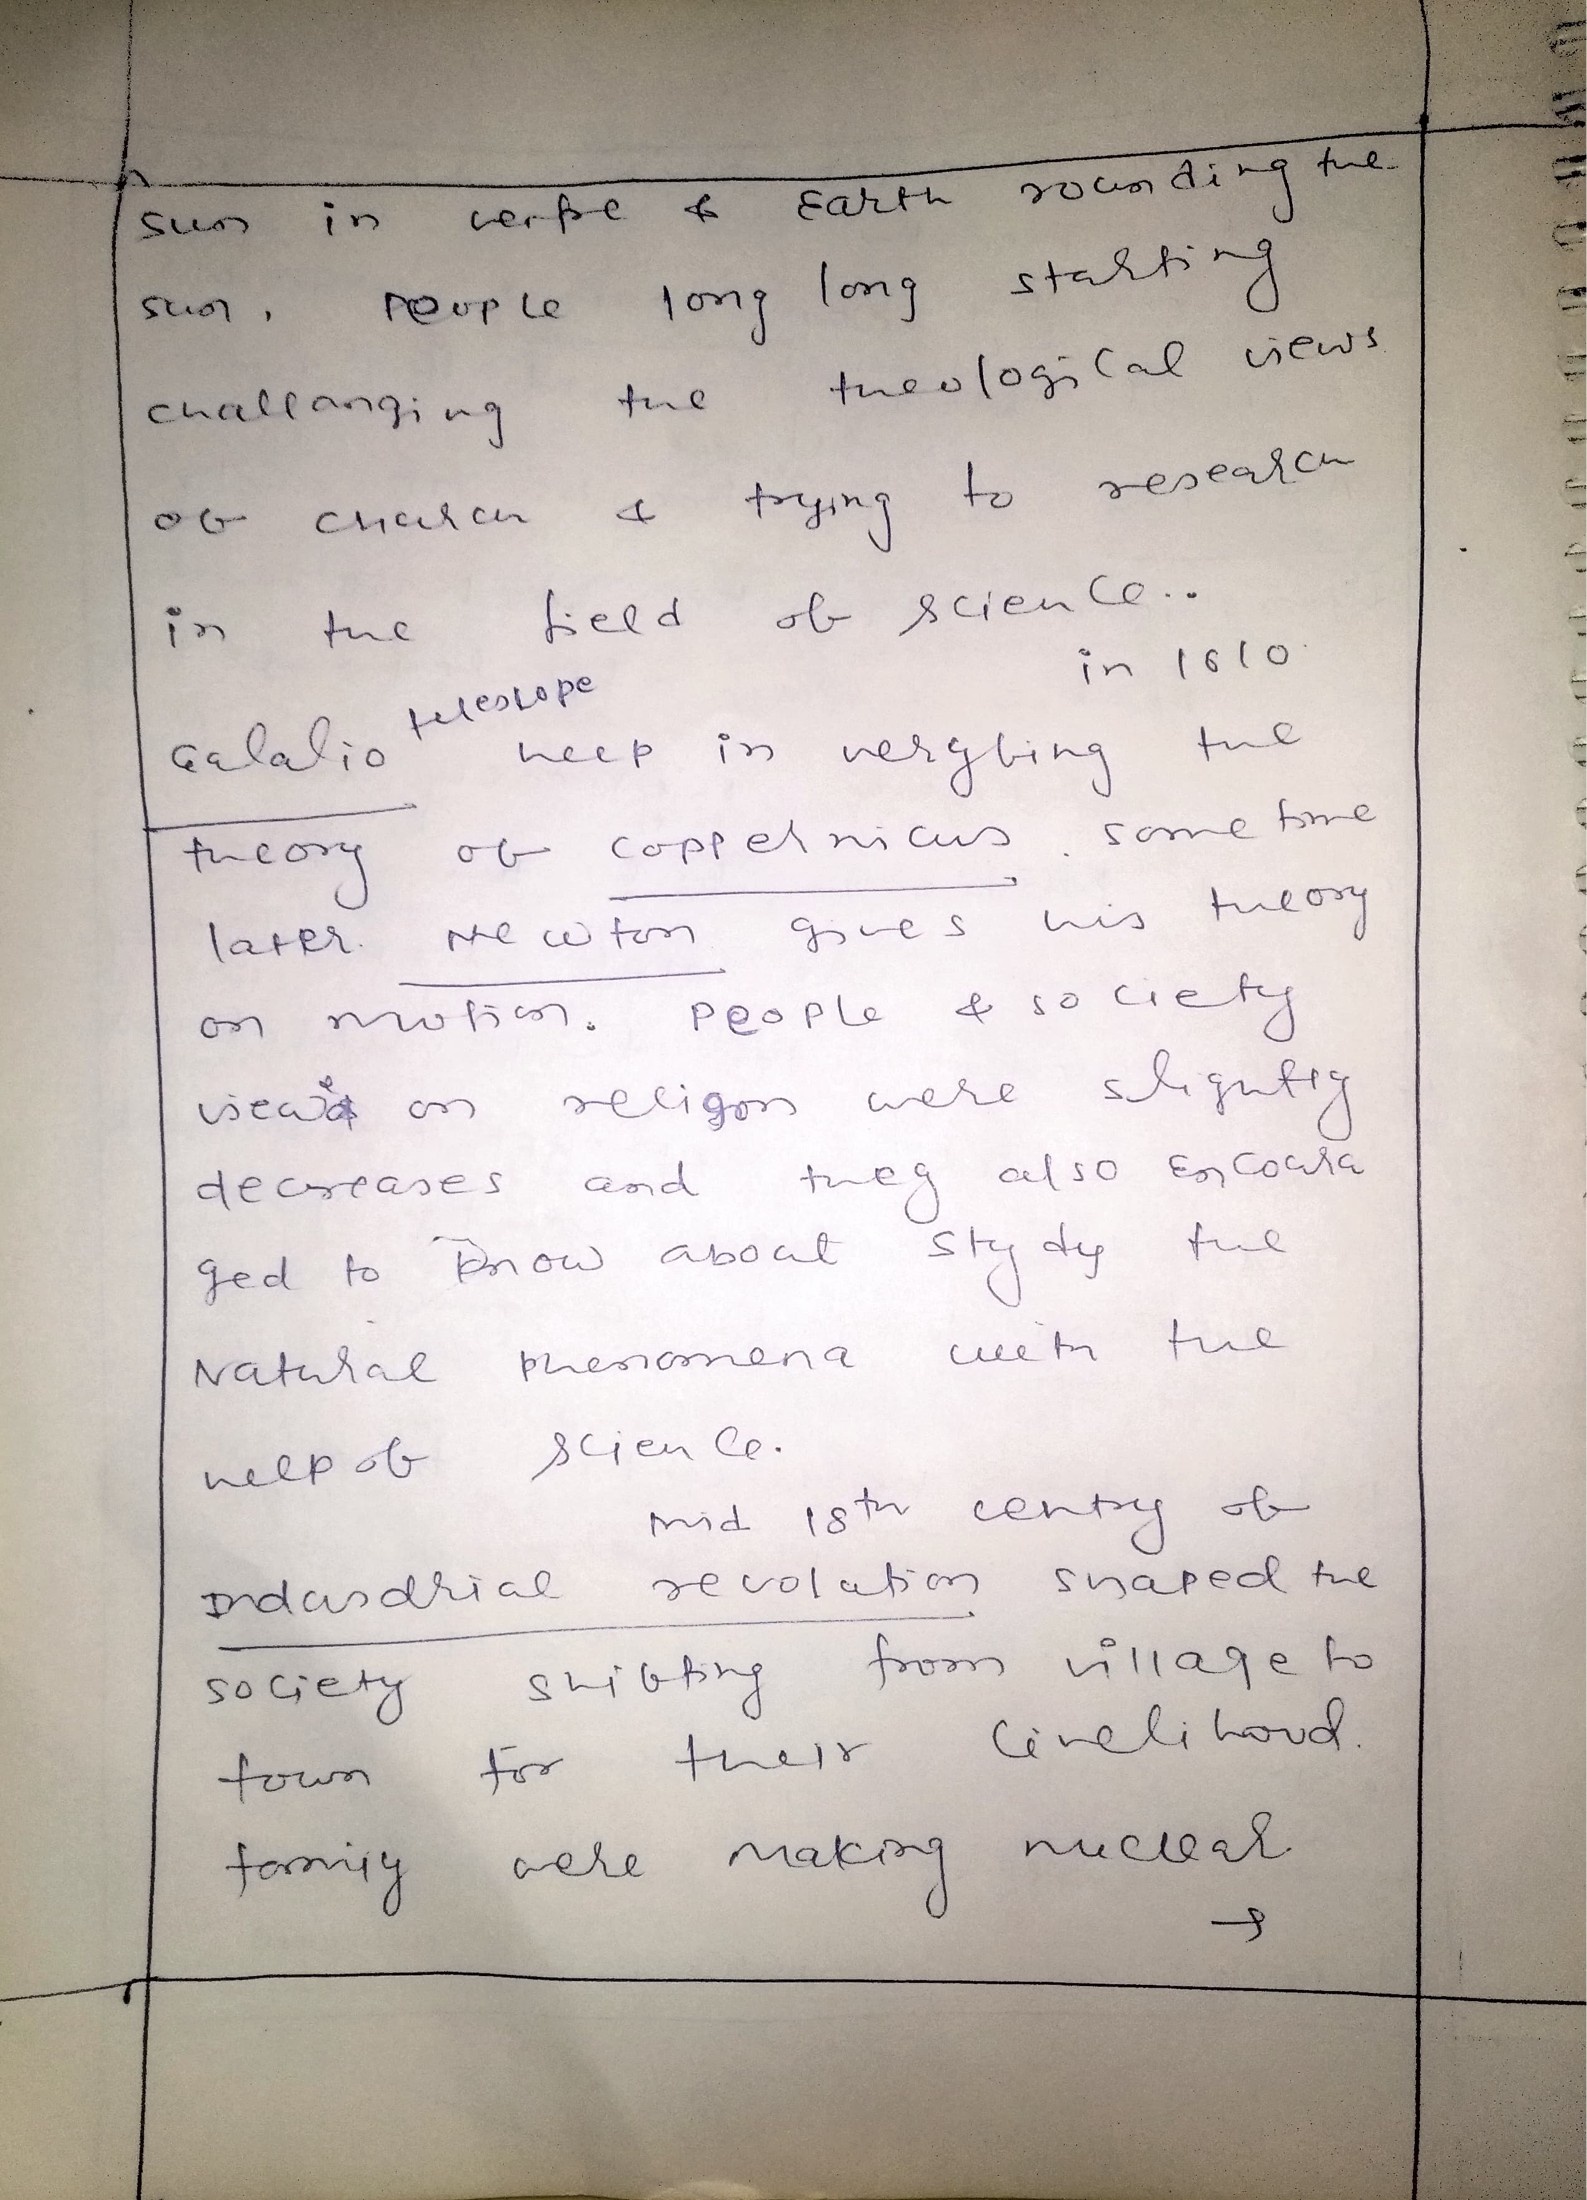 sun in & Earth rounding the
sun. People long long starting
challanging the theological views
of church & trying to research
in the field of science..
in 1610
Galalio telescope help in veryfing the
theory of Coppernicus. some time
later. Newton gives his theory
on motion. People & society
views on religon were slightly
decreases and they also Encoura
ged to know about stydy the
Natural phenomena with the
help of science.
Mid 18th centry of
Indusdrial revolution shaped the
society shifting from village to
town for their livelihood.
family were making nuclear
→